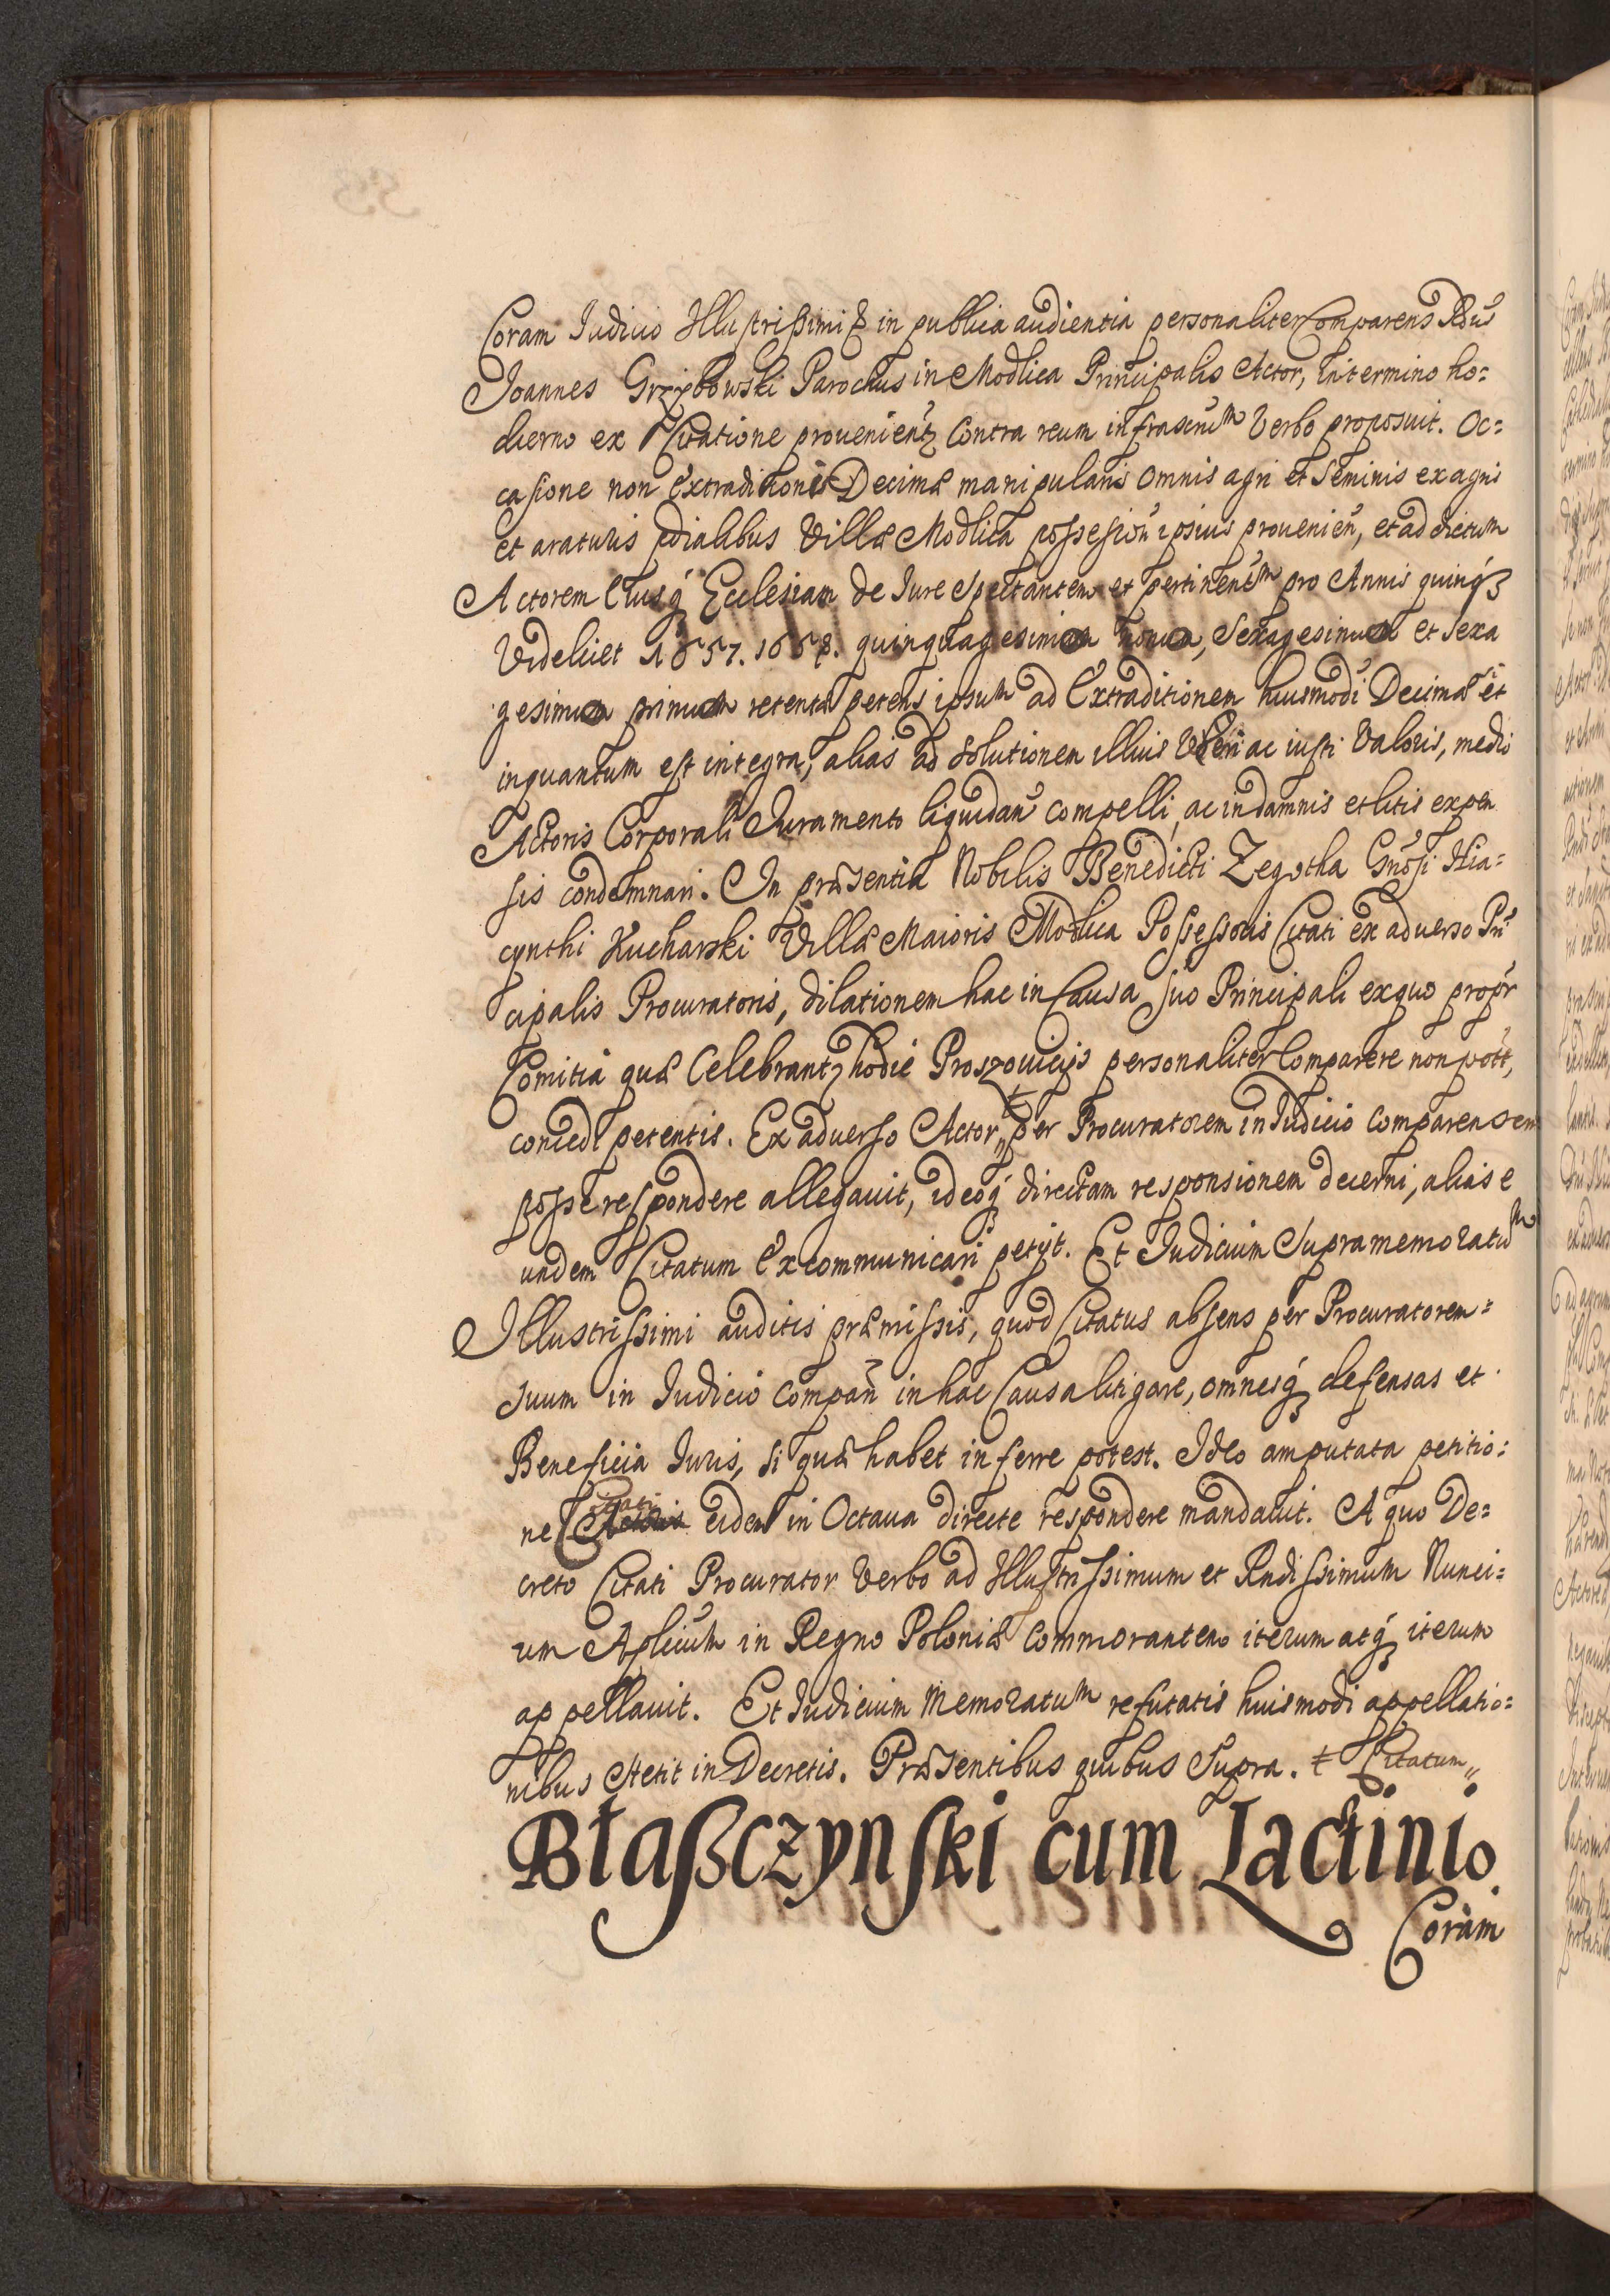 Coram Iudicio Illustrissimi & in publica audientia personaliter Comparens Rdus
Joannes Grzybowski Parochus in Modlica Principalis Actor, in termino ho=
dierno ex Citatione prouenienti Contra reum infrascriptum Verbo proposuit. Oc=
casione non Extraditionis Decimæ manipularis omnis agri et seminis ex agris
et araturis prædialibus Villæ Modlica possesion ipsius prouenien, et ad dictum
Actorem Eiusq Ecclesiam de Iure spectantem et pertinentem pro Annis quinq
Videlicet 1657. 1658. quinquagesimum nonum, sexagesimum et sexa
gesimum primum retentæ petens ipsum ad Extraditionem huiusmodi Decimæ et
inquantum est integra, alias ad Solutionem illius Veri ac iusti Valoris, medio
Actoris Corporali Iuramento liquidan compelli, ac in damnis et litis expen
sis condemnari. In præsentia Nobilis Benedicti Zegotha Gnosi Hia=
cynthi Kucharski Villæ Maioris Modlica Possessoris Citati ex aduerso Prin
cipalis Procuratoris, dilationem hac in Causa suo Principali exquo propr
Comitia quæ Celebrant hodie Proszouicijs personaliter Comparere non pott,
concedi petentis. Ex aduerso Actor ŧ per Procuratorem in Iudicio comparen
posse respondere allegauit, ideoq directam responsionem decerni, alias e
undem Citatum Excommunicari petijt. Et Iudicium Supramemoratum
Illustrissimi auditis præmissis, quod Citatus absens per Procuratorem=
suum in Iudicio compan in hac Causa litigare, omnesq defensas et
Beneficia Iuris, si quæ habet inferre potest. Ideo amputata petitio=
ne Citati eidem in Octaua directe respondere mandauit. A quo De=
creto Citati Procurator Verbo ad Illustrissimum et Rndissimum Nunci=
um Aplicum in Regno Poloniæ commorantem iterum atq iterum
appellauit. Et Iudicium Memoratum refutatis huismodi appellatio=
nibus stetit in Decretis. Præsentibus quibus Supra. ŧ Citatum
Błaszczynski cum Lactinio
Coram